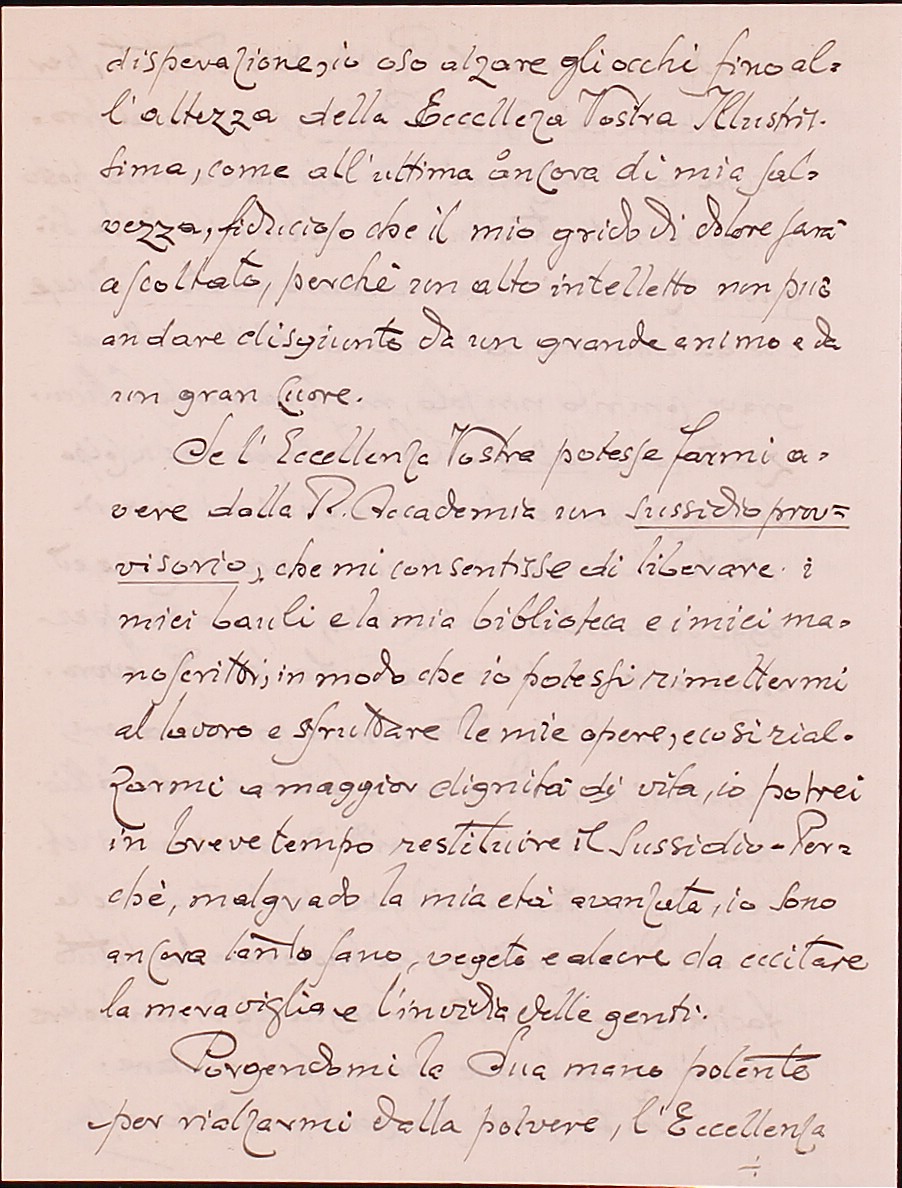 disperazione, io oso alzare gli occhi fino al=
l'altezza della Eccellenza Vostra Illustris-
sima, come all'ultima àncora di mia sal=
vezza, fiducioso che il mio grido di dolore sarà
ascoltato, perchè un alto intelletto non può
andare disgiunto da un grande animo e da
un gran cuore.
Se l'Eccellenza Vostra potesse farmi a=
vere dalla R. Accademia un sussidio prov=
visorio, che mi consentisse di liberare i
miei bauli e la mia biblioteca e i miei ma=
noscritti, in modo che io potessi rimettermi
al lavoro e sfruttare le mie opere, e così rial-
zarmi a maggior dignità di vita, io potrei
in breve tempo restituire il sussidio - Per=
chè, malgrado la mia età avanzata, io sono
ancora tanto sano, vegeto e alacre da eccitare
la meraviglia e l'invidia delle genti.
Porgendomi la Sua mano potente
per rialzarmi dalla polvere, l'Eccellenza
÷